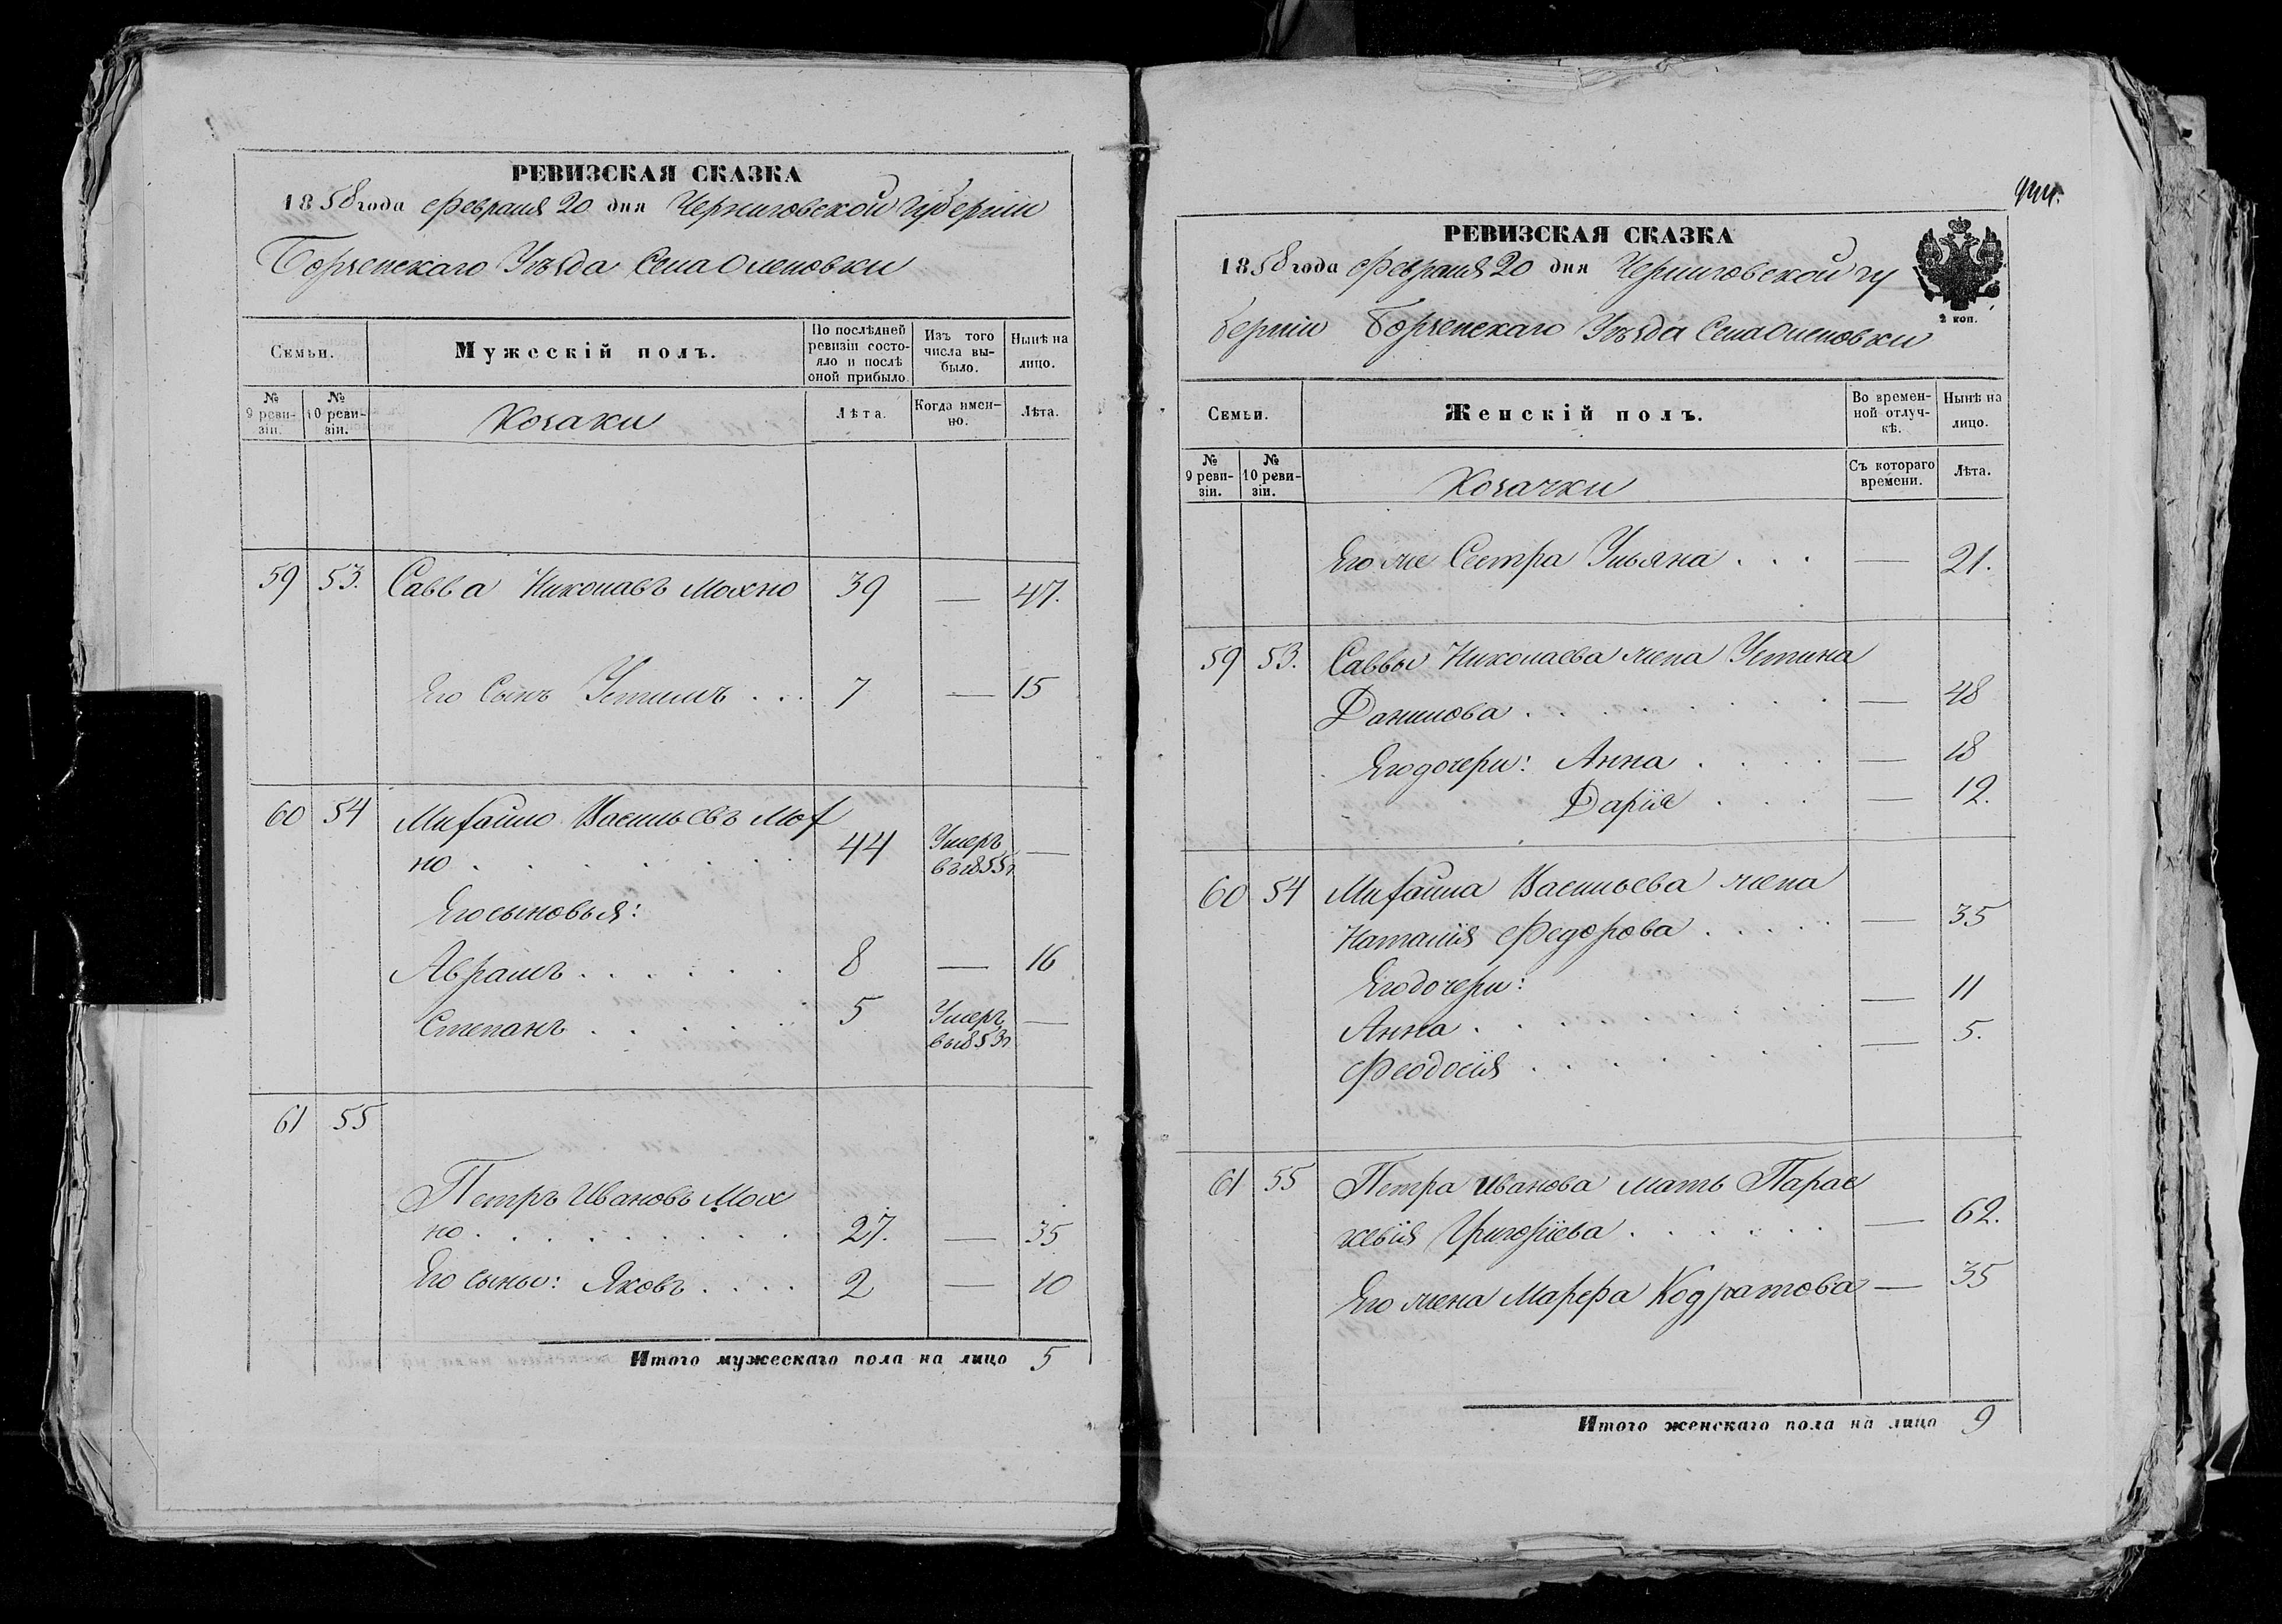 РЕВИЗСКАЯ СКАЗКА
1858 года Февраля 20 дня Черниговской Губерніи
Борзенскаго Уѣзда Села Оленовки
Семьи.
Мужескій полъ.
По послѣдней ревизіи состояло и послѣ оной прибыло.
Изъ того числа выбыло.
Нынѣ на лицо.
№ 9 ревизіи.
№ 10 ревизіи.
Козаки
Лѣта.
Когда именно.
Лѣта.
59 53. Савва Николаевъ Мохно 39 — 47.
Его Сынъ Устимъ . . . 7 — 15
60 54 Михайло Васильевъ Мох
но . . . . . . . 44 Умеръ въ 1855 г. —
Его сыновья:
Аврамъ . . . . . . 8 — 16
Степанъ . . . . . . 5 Умеръ въ 1853 г. —
61 55
Петръ Ивановъ Мох
но . . . . . . . . 27. — 35
Его сыны: Яковъ . . . . 2 — 10
Итого мужескаго пола на лицо 5
РЕВИЗСКАЯ СКАЗКА
1858 года Февраля 20 дня Черниговской Гу
берніи Борзенскаго Уѣзда Села Оленовки
2 коп.
Семьи.
Женскій полъ.
Во временной отлучкѣ.
Нынѣ на лицо.
№ 9 ревизіи.
№ 10 ревизіи.
Козачки
Съ котораго времени.
Лѣта.
Его же Сестра Ульяна . . . — 21.
59 53. Саввы Николаева жена Устина
Данилова . . . . . . . — 48
Его дочери: Анна . . . . — 18
Дарія . . . — 12.
60 54 Михайла Васильева жена
Наталія Федорова . . . . . — 35
Его дочери:
Анна . . . . . . . . — 11
Феодосія . . . . . . . — 5.
61 55 Петра Иванова мать Парас
кевія Григоріева . . . . . . — 62.
Его жена Марфа Кодратова — 35
Итого женскаго пола на лицо 9